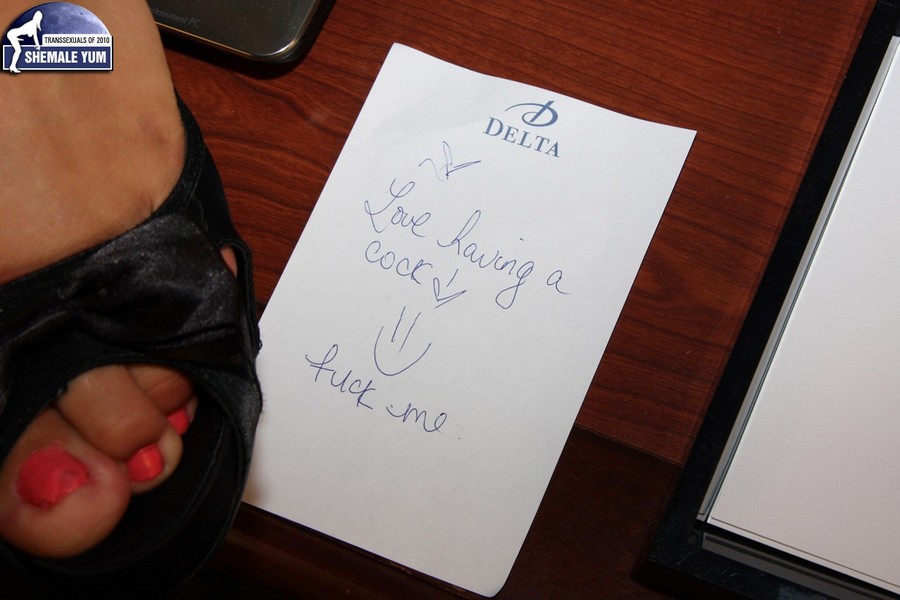 TRANSSEXUALS OF 2010
SHEMALE YUM
DELTA
Love having a
cock
fuck me